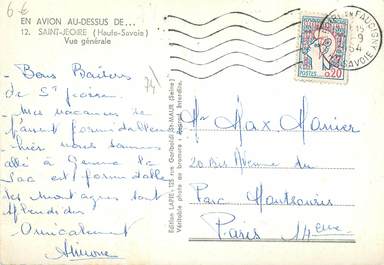 6 €
EN AVION AU-DESSUS DE...
12. SAINT-JEOIRE (Haute-Savoie)
Vue générale
74
- Bons Baisers
de St Jeoire.
- Mes vacances se
formidablement
- hier nous sommes
allé à
lac est formidable
les montagnes sont
splendides
Amicalement
Edition LAPIE, 125 rue Garibaldi St-MAUR (Seine)
Véritable photo au bromure - Reprod. interdite.
EN FAUCIGNY
-9
64
SAVOIE
POSTES
0,20
Mr Max
20 Bis Avenue du
Parc Montsouris
Paris 14ème